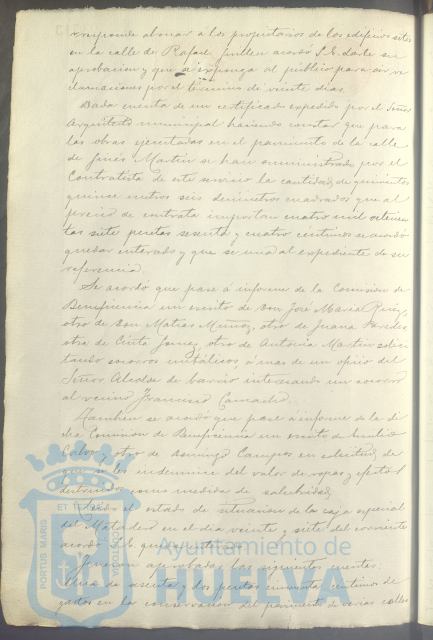 responde abonar a los propietarios de los edificios sitos
en la calle de Rafael Guillen acordó S. E. darle su
aprobacion y que se exponga al público para oir re
clamaciones por el termino de veinte dias.
Dada cuenta de un certificado expedido por el Señor
Arquitecto municipal haciendo constar que para
las obras ejecutadas en el pavimento de la calle
de Ginés Martin se han suministrado por el
Contratista de este servicio la cantidad de quinientos
quince metros seis decimetros cuadrados que al
precio de contrata importan cuatro mil setecien
tas siete pesetas sesenta y cuatro céntimos se acordó
quedar enterado y que se una al expediente de su
referencia.
Se acordó que pase á informe de la Comision de
Beneficencia un escrito de Don José Maria Ruiz,
otro de Don Matias Muñoz, otro de Juana Paredes
otro de Cinta Gomez, otro de Antonia Martin solici
tando socorros metálicos, á mas de un oficio del
Señor Alcalde de barrio interesando un socorro
al vecino Francisco Camacho.
Tambien se acordó que pase á informe de la di
cha Comision de Beneficencia un escrito de Emilio
Calvo y otro de Domingo Campos en solicitud de
que se les indemnice del valor de ropas y efectos
destruidos como medidas de salubridad.
Leido el estado de situacion de la caja especial
del Matadero en el dia veinte y siete del corriente
acordó S. E. quedar enterado.
Fueron aprobadas las siguientes cuentas:
Una de sesenta y dos pesetas cincuenta centimos de
gastos en la conservacion del pavimento de varias calles
PORTUS MARIS
ET TERRAE CUSTODIA
Ayuntamiento de
HUELVA